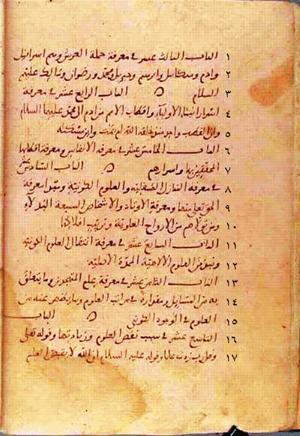 ١ الباب الثالث عشر في معرفة حملة العرش وهم اسرافيل
٢ وادم وميكاييل وابرهيم وجبريل ومحمد ورضوان ومالك عليهم
٣ السلام الباب الرابع عشر في معرفة
٤ اسرار انبيا الاوليا واقطاب الامم من ادم الى محمد عليهما السلام
٥ وان القطب واحد منذ خلقه الله لم يمت واين مسكنه
٦ الباب الخامس عشر في معرفة الانفاس ومعرفة اقطابها
٧ المحققين بها واسرارهم الباب السادس عشر
٨ في معرفة المنازل السفلية والعلوم الكونية ومبدا معرفة
٩ الحق منها ومعرفة الاوتاد والاشخاص السبعة البدلا
١٠ ومن تولاهم من الارواح العلوية وترتيب افلاكها
١١ الباب السابع عشر في معرفة انتقال العلوم الكونية
١٢ ونبذ من العلوم الالهية الممدة الاصلية
١٣ الباب الثامن عشر في معرفة علم المتهجدين وما يتعلق
١٤ به من المسايل ومقداره في مراتب العلوم وما يظهر عنه من
١٥ العلوم في الوجود الكوني الباب
١٦ التاسع عشر في سبب نقص العلوم وزيادتها وقوله تعالى
١٧ وقل رب زدني علما وقوله عليه السلام ان الله لا يقبض العلم